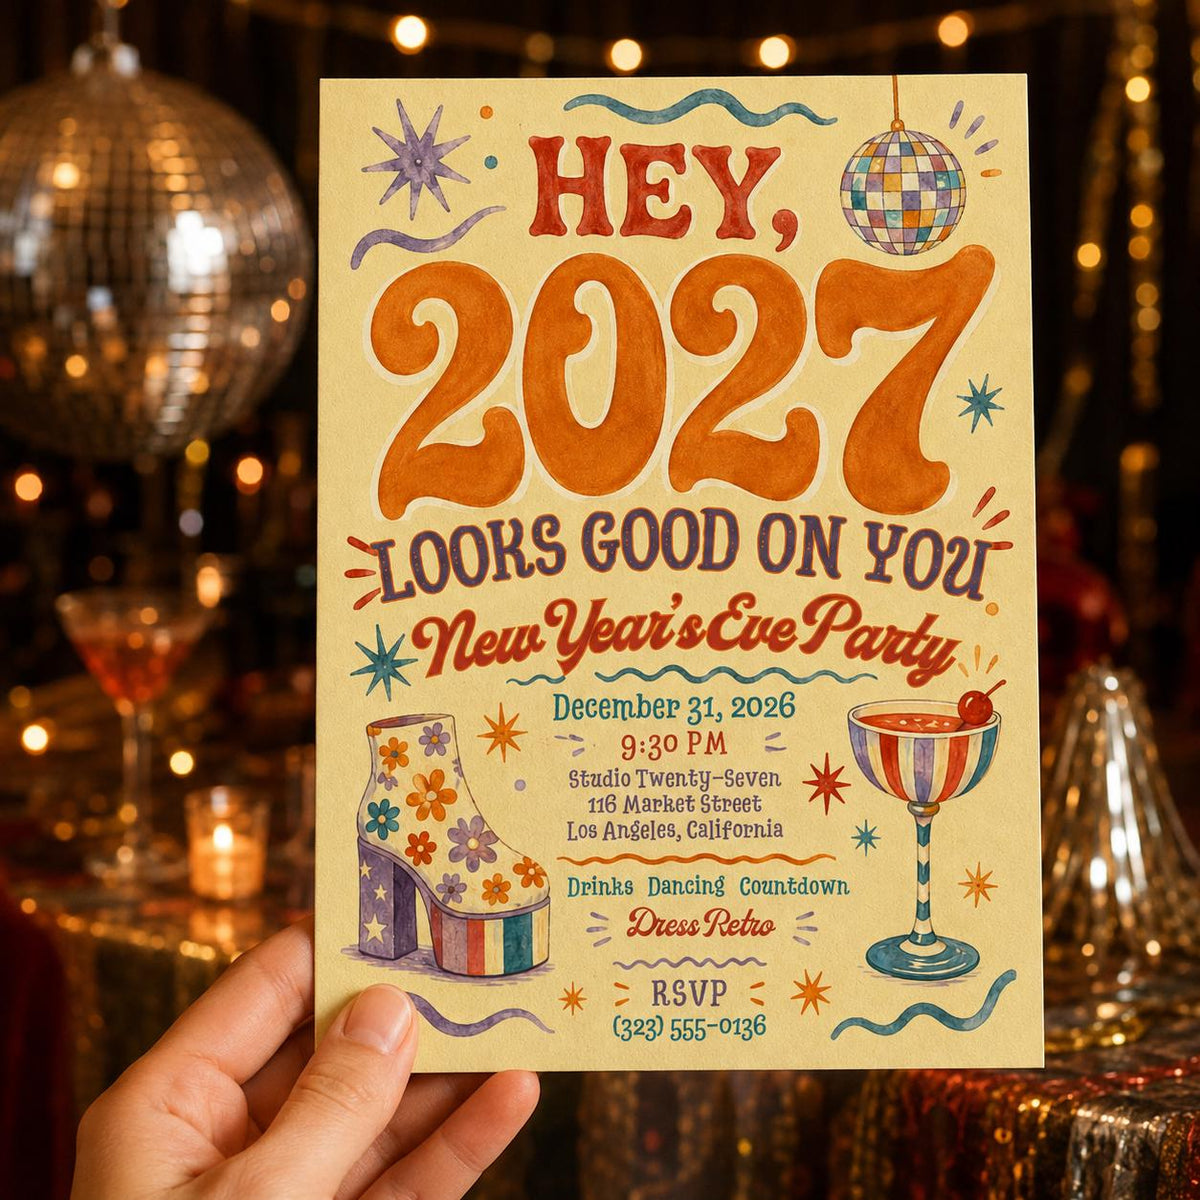 HEY,
2027
LOOKS GOOD ON YOU
New Year's Eve Party
December 31, 2026
9:30 PM
Studio Twenty-Seven
116 Market Street
Los Angeles, California
Drinks Dancing Countdown
Dress Retro
RSVP
(323) 555-0136